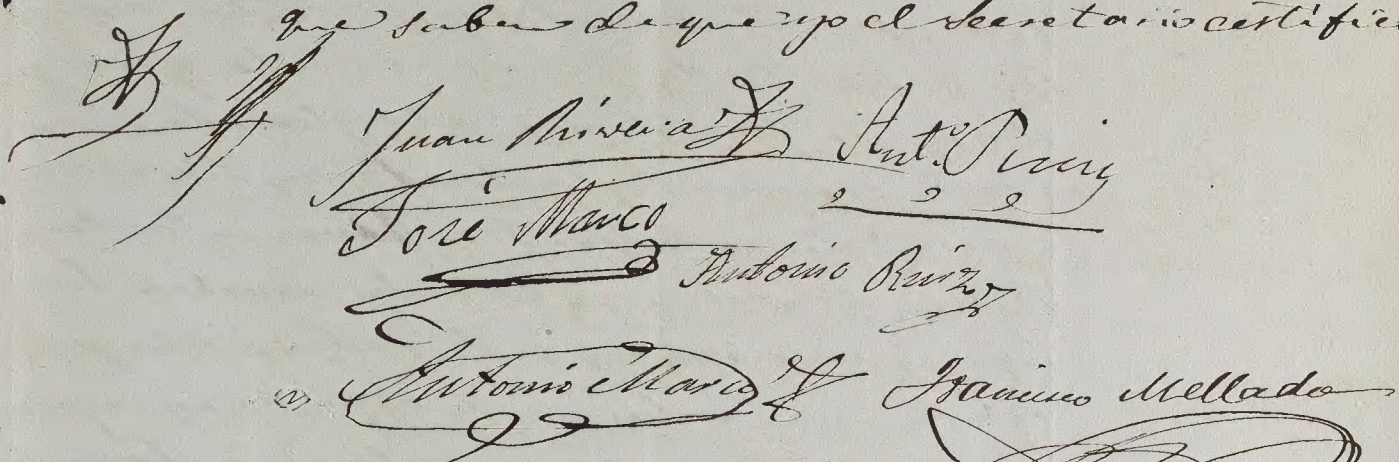 que saben de que yo el secretario certifico
Juan Rivera Antº Puig
José Marco
Antonio Ruiz
Antonio Marco Francisco Mellado